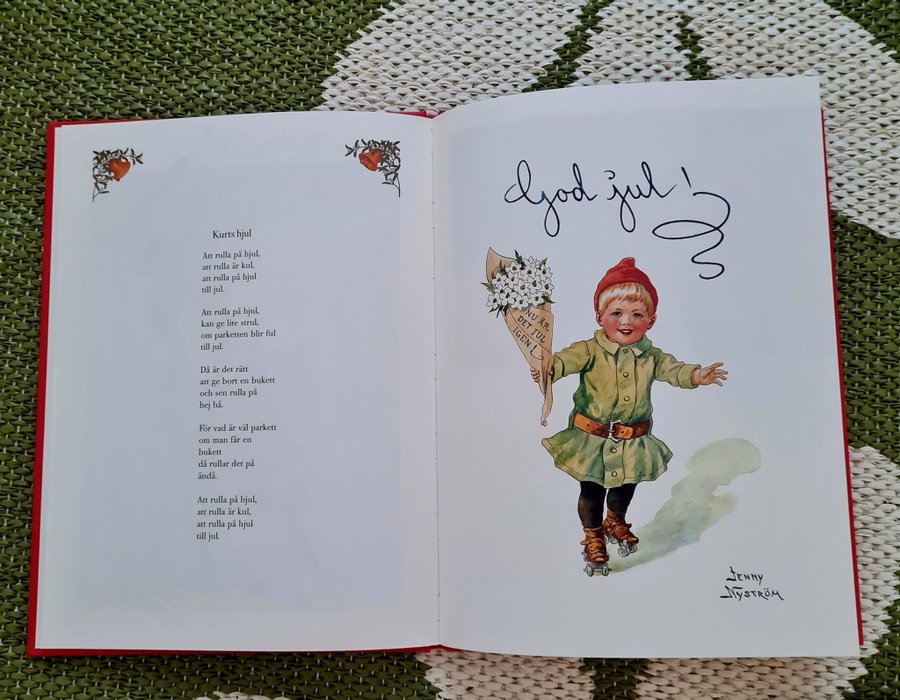 Kurts hjul
Att rulla på hjul,
att rulla är kul,
att rulla på hjul
till jul.
Att rulla på hjul,
kan ge lite strul,
om parketten blir ful
till jul.
Då är det rätt
att ge bort en bukett
och sen rulla på
hej hå.
För vad är väl parkett
om man får en
bukett
då rullar det på
ändå.
Att rulla på hjul,
att rulla är kul,
att rulla på hjul
till jul.
God jul!
NU ÄR
DET JUL
IGEN!
JENNY
NYSTRÖM